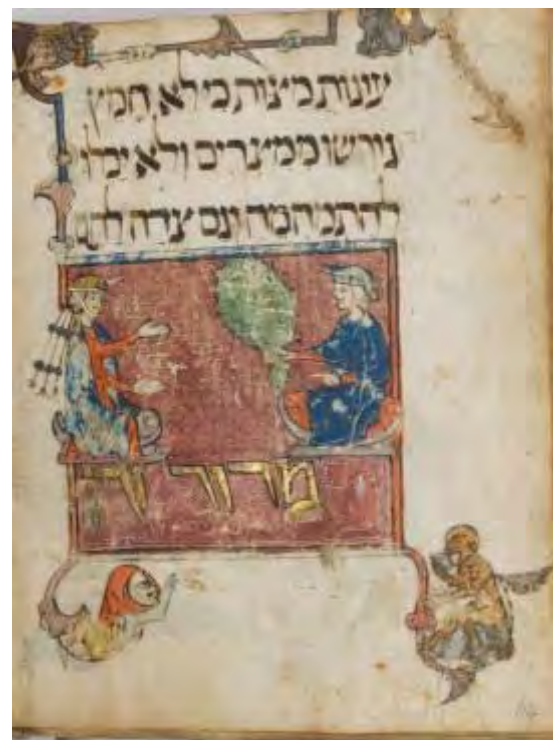 עגות מצות כי לא חמץ
גורשו ממצרים ולא יכלו
להתמהמה וגם צדה
מרור זה